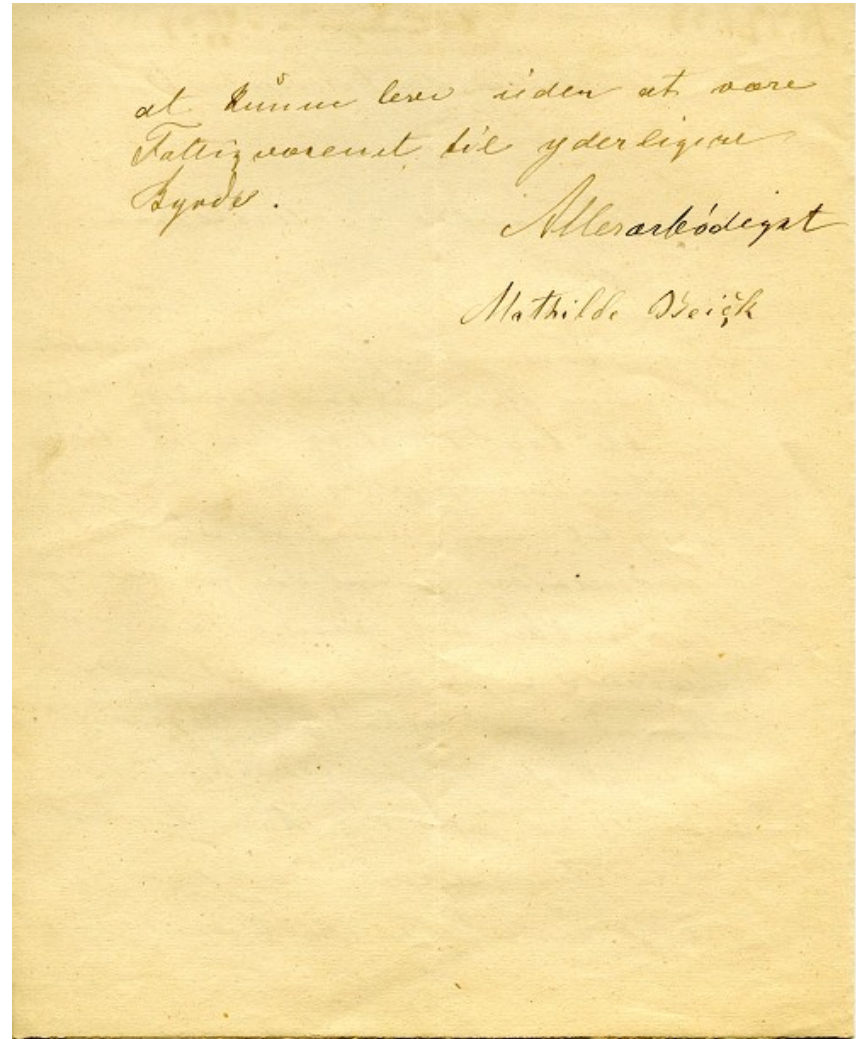 at kunne leve uden at være
Fattigvæsenet til yderligere
Byrde.
Allerærbödigst
Mathilde